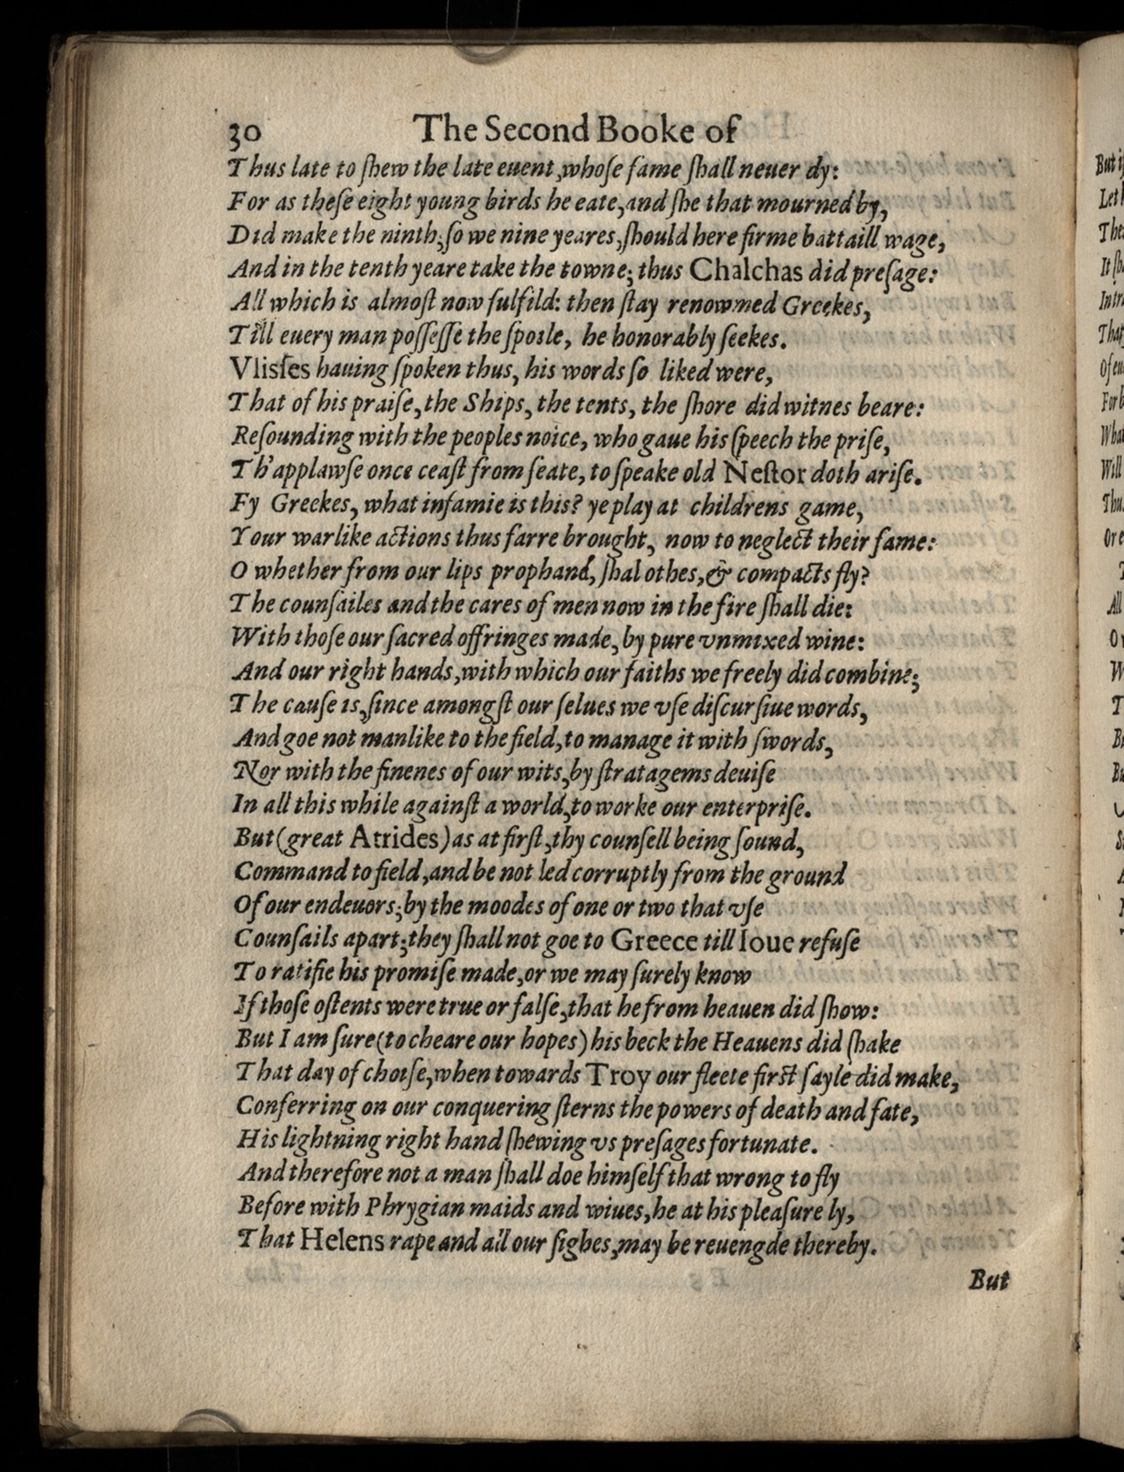 30 The Second Booke of
Thus late to ſhew the late euent, whoſe fame ſhall neuer dy:
For as theſe eight young birds he eate, and ſhe that mourned by,
Did make the ninth; ſo we nine yeares, ſhould here firme battaill wage,
And in the tenth yeare take the towne; thus Chalchas did preſage:
All which is almoſt now fulfild: then ſtay renowmed Greekes,
Till euery man poſſeſſe the ſpoile, he honorably ſeekes.
Vliſſes hauing ſpoken thus, his words ſo liked were,
That of his praiſe, the Ships, the tents, the ſhore did witnes beare:
Reſounding with the peoples noice, who gaue his ſpeech the priſe,
Th'applawſe once ceaſt from ſeate, to ſpeake old Neſtor doth ariſe.
Fy Greekes, what infamie is this? ye play at childrens game,
Your warlike actions thus farre brought, now to neglect their fame:
O whether from our lips prophand, ſhal othes, & compacts fly?
The counſailes and the cares of men now in the fire ſhall die:
With thoſe our ſacred offringes made, by pure vnmixed wine:
And our right hands, with which our faiths we freely did combine;
The cauſe is, ſince amongſt our ſelues we vſe diſcurſiue words,
And goe not manlike to the field, to manage it with ſwords,
Nor with the finenes of our wits, by ſtratagems deuiſe
In all this while againſt a world, to worke our enterpriſe.
But (great Atrides) as at firſt, thy counſell being ſound,
Command to field, and be not led corruptly from the ground
Of our endeuors; by the moodes of one or two that vſe
Counſails apart; they ſhall not goe to Greece till Ioue refuſe
To ratifie his promiſe made, or we may ſurely know
If thoſe oſtents were true or falſe, that he from heauen did ſhow:
But I am ſure (to cheare our hopes) his beck the Heauens did ſhake
That day of choiſe, when towards Troy our fleete firſt ſayle did make,
Conferring on our conquering ſterns the powers of death and fate,
His lightning right hand ſhewing vs preſages fortunate.
And therefore not a man ſhall doe himſelf that wrong to fly
Before with Phrygian maids and wiues, he at his pleaſure ly,
That Helens rape and all our ſighes, may be reuengde thereby.
But